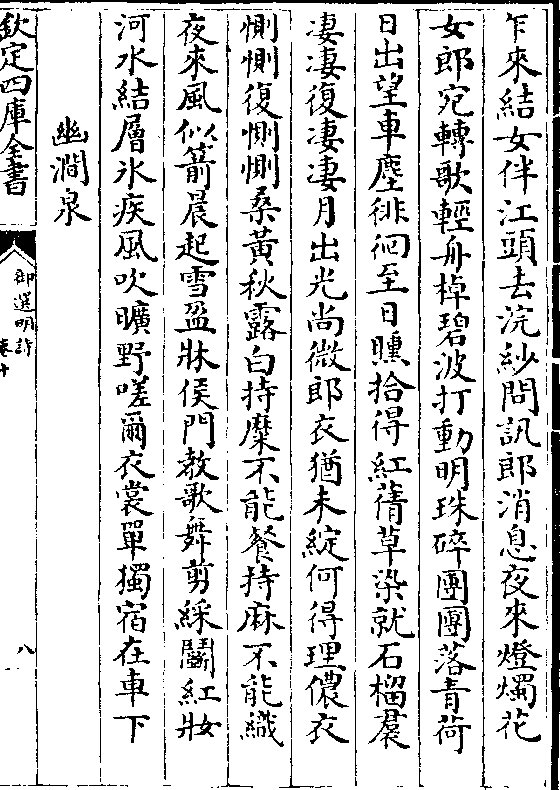 乍來結女伴江頭去浣紗問訊郎消息夜來燈燭花
女郎宛轉歌輕舟棹碧波打動明珠碎團團落青荷
日出望車塵徘徊至日曛拾得紅蒨草染就石榴裠
淒淒復淒淒月出光尚微郎衣猶未綻何得理儂衣
惻惻復惻惻桑黃秋露白持糜不能餐持麻不能織
夜來風似箭晨起雪盈牀侯門教歌舞剪綵鬬紅妝
河水結層氷疾風吹曠野嗟爾衣裳單獨宿在車下
幽澗泉
欽定四庫全書
御選明詩
卷十
八